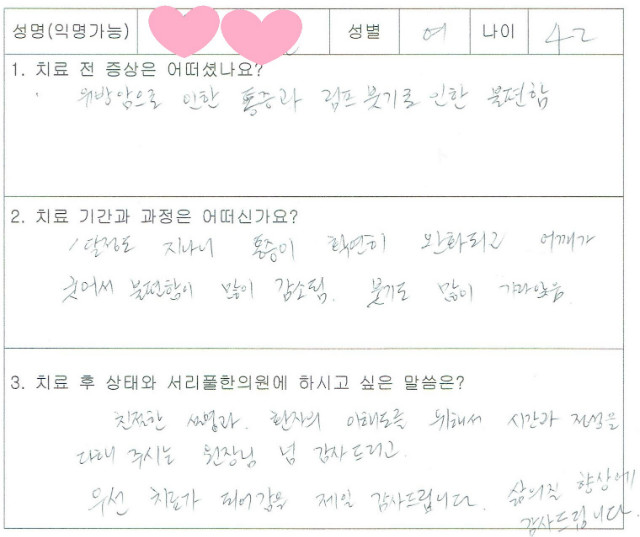 성명(익명가능) 성별 여 나이 42
1. 치료 전 증상은 어떠셨나요?
유방암으로 인한 통증과 림프 붓기로 인한 불편함
2. 치료 기간과 과정은 어떠신가요?
1달정도 지나니 통증이 확연히 완화되고 어깨가
굳어서 불편함이 많이 감소됨. 붓기도 많이 가라앉음.
3. 치료 후 상태와 서리풀한의원에 하시고 싶은 말씀은?
친절한 설명과. 환자의 이해도를 위해서 시간과 정성을
다해 주시는 원장님 넘 감사드리고.
우선 치료가 되어감을 제일 감사드립니다. 삶의질 향상에
감사드립니다.